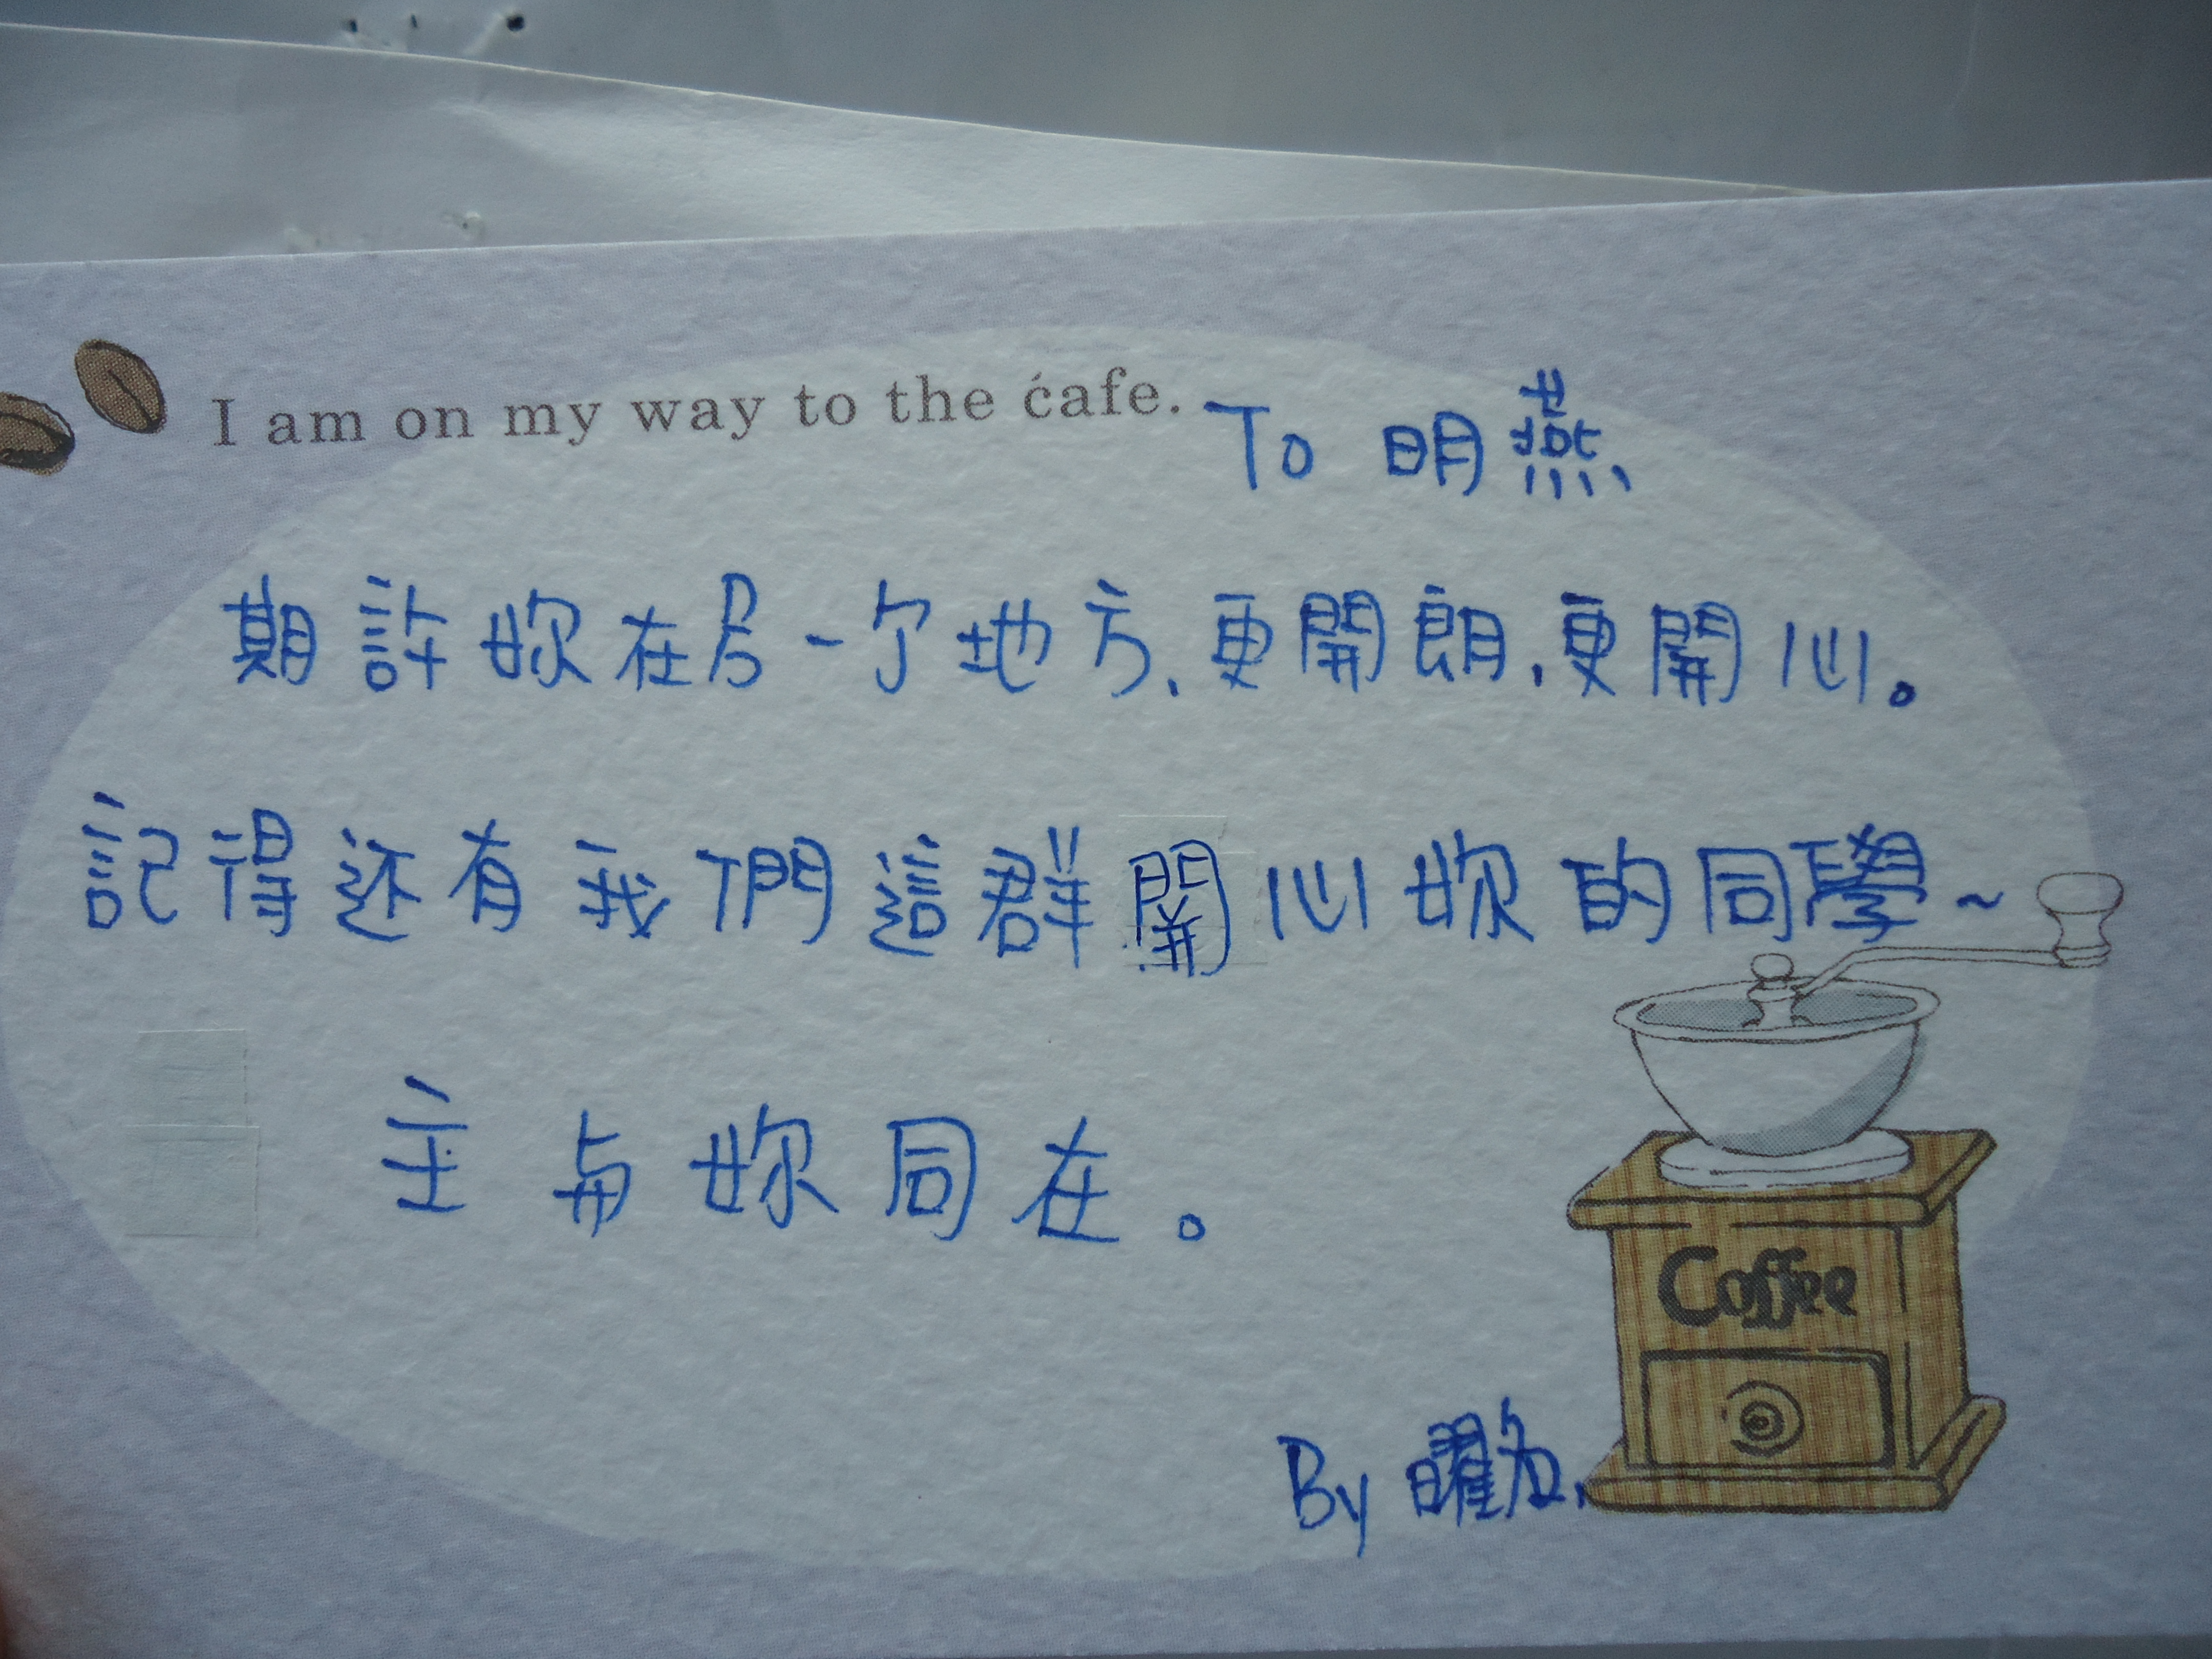 I am on my way to the cafe.
To 明燕
期許妳在另一个地方,更開朗,更開心。
記得还有我們這群開心妳的同學~
主与妳同在。
Coffee
By 曜